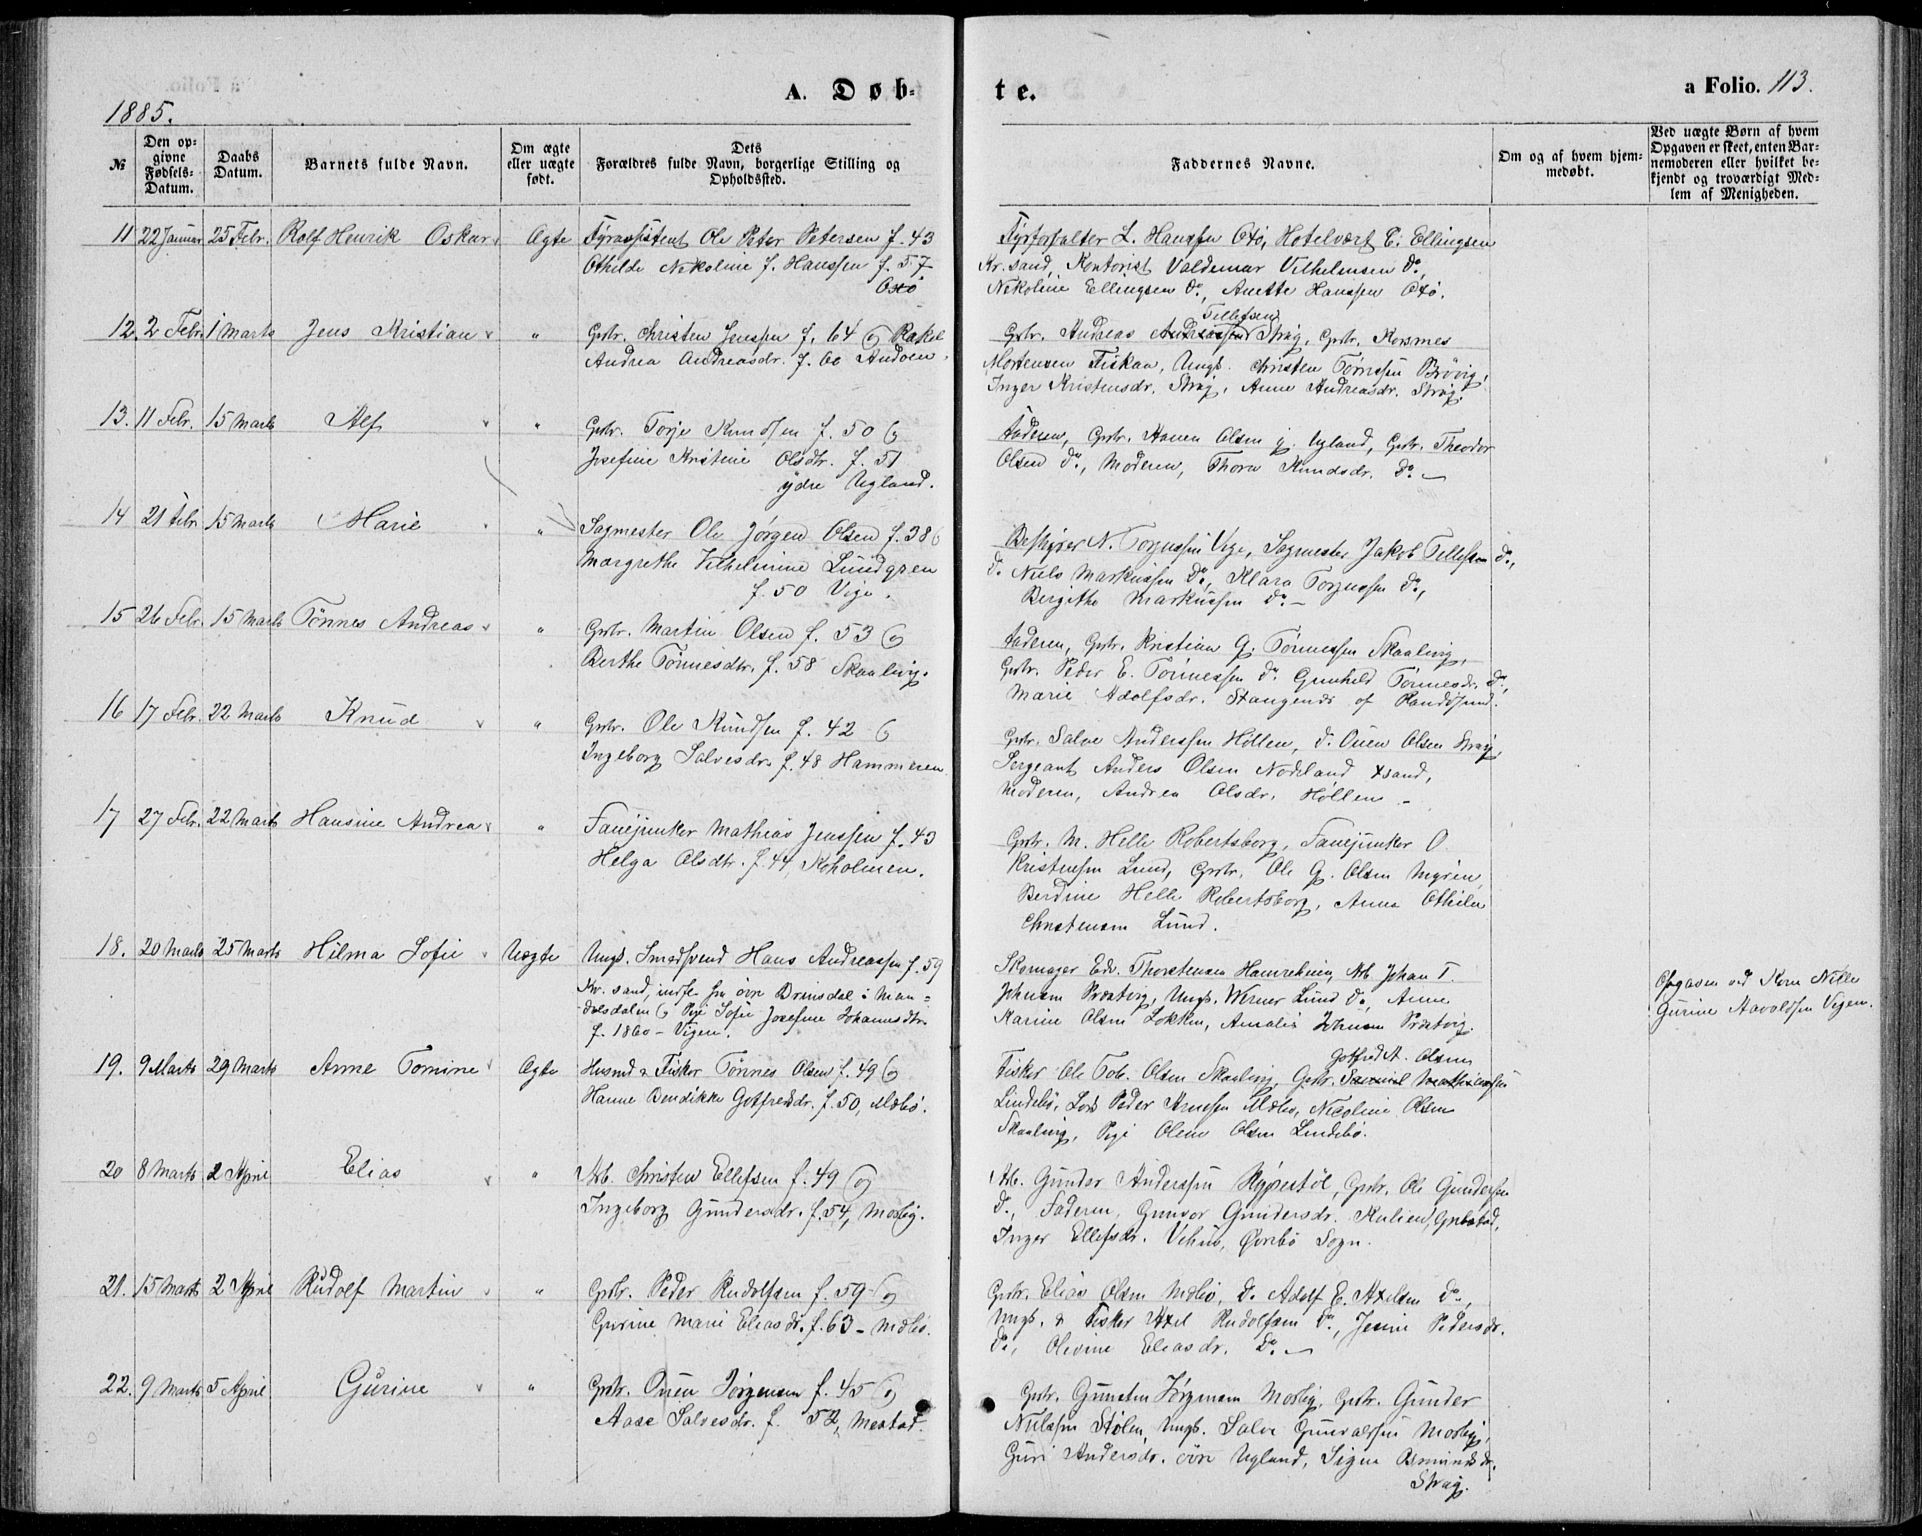 A. Døb-
te.
a Folio. 113.
1885.
№
Den op-
givne
Fødsels-
Datum.
Daabs
Datum.
Barnets fulde Navn.
Om ægte
eller uægte
født.
Dets
Forældres fulde Navn, borgerlige Stilling og
Opholdssted.
Faddernes Navne.
Om og af hvem hjem-
medøbt.
Ved uægte Børn af hvem
Opgaven er skeet, enten Bar-
nemoderen eller hvilket be-
kjendt og troværdigt Med-
lem af Menigheden.
11 22 Januar 25 Febr. Rolf Henrik Oskar Ægte Fyrassistent Ole Peter Petersen f. 43
Othilde Nekoline f. Hanssen f. 57
Oxø
Fyrforvalter L. Hanssen Oxø, Hotelvært E. Ellingsen
Kr.sand, Kontorist Valdemar Vilhelmsen do,
Nekoline Ellingsen do, Anette Hanssen Oxø.
12. 2 Febr. 1 Marts Jens Kristian " Gstr. Christen Jenssen f. 64 og Rakel
Andrea Andreasdr. f. 60 Andøen.
Tellefsen
Gstr. Andreas Andreassen Strag, Gstr. Rosmes
Mortensen Fiskaa, Ungk. Christen Tørresen Brøvig,
Inger Kristensdr. Strag, Anne Andreasdr. Strag.
13. 11 Febr. 15 Marts Alf " Gstr. Torje Knudsen f. 50 og
Josefine Kristine Olsdtr. f. 51
ydre Ugland.
Faderen, Gstr. Hauen Olsen y. Ugland, Gstr. Theodor
Olsen do, Moderen, Thora Knudsdr. do
14 21 febr 15 Marts Marie " Sagmester Ole Jørgen Olsen f. 38 og
Margrethe Vilhelmine Lundgren
f. 50 Vige.
Bestyrer N. Torjussen Vige, Sagmester Jakob Tellefsen do,
d. Niels Markussen do, Klara Torjussen do,
Bergithe Markussen do
15 26 Febr. 15 Marts Tønnes Andreas " Gstr. Martin Olsen f. 53 og
Berthe Tønnesdtr. f. 58 Skaalevig.
Faderen, Gstr. Kristian G. Tønnessen Skaalevig,
Gstr. Peder E. Tønnessen do Gunhild Tønnesdr. do,
Marie Adolfsdr. Stangenes af Randøsund.
16 17 Febr. 22 Marts Knud " Gstr. Ole Knudsen f. 42 og
Ingeborg Salvesdr. f. 48 Hammeren
Gstr. Salve Anderssen Hollen, d. Ouen Olsen Strag,
Sergeant Anders Olsen Nodeland xsand,
Moderen, Andrea Olsdr. Hollen
17 27 Febr. 22 Marts Hansine Andrea " Fanejunker Mathias Jenssen f. 43
Helga Olsdtr. f. 44, Koholmen.
Gstr. M. Helle Robertsborg, Fanejunker O.
Kristensen Lund, Gstr. Ole G. Olsen Myren,
Berdine Helle Robertsborg, Anna Othilie
Christensen Lund.
18. 20 Marts 25 Marts Hilma Sofie Uægte Ungk. Smedsvend Hans Andreassen f. 59
Kr.sand, indfl. fra øvre Brinsdal i Man-
dalsdalen og Pige Sofie Josefine Johannesdtr.
f. 1860 - Vigen.
Skomager Edv. Thorstensen Hamreheien, Arb. Johan T.
Johnsen Prestvig, Ungk. Werner Lund do, Anne
Karine Olsen Løkken, Amalie Johnsen Prestvig.
Opgaven ved Kone Nille
Gurine Aavoldsen Vigen.
19. 9 Marts 29 Marts Anne Tomine Ægte Husmd & Fisker Tønnes Olsen f. 49 og
Hanne Bendikke Gotfredsdr. f. 50, Mæbø.
Gotfred A. Olsen
Fisker Ole Tob. Olsen Skaalevig, Gstr. Samuel Mathiassen
Lindebø, Lods Peder Arnesen Mæbø, Nicoline Olsen
Skaalevig, Pige Olene Olsen Lindebø.
20 8 Marts 2 April Elias " Arb. Christen Ellefsen f. 49 og
Ingeborg Gundersdr. f. 54, Mosby.
Arb. Gunder Anderssen Rypestøl, Gstr. Ole Gunderssen
do, Faderen, Gunvor Gundersdr. Kulien, Grebstad,
Inger Ellefsdr. Vehus, Øvrebø Sogn.
21. 15 Marts 2 April Rudolf Martin " Gstr. Peder Rudolfsen f. 59 og
Gurine Marie Eliasdr. f. 63 - Mæbø.
Gstr. Elias Olsen Mæbø, d. Adolf E. Axelsen do,
Ungk. & Fisker Axel Rudolfsen do, Jenine Pedersdr.
do, Olivine Eliasdr. do
22. 9 Marts 5 April Gurine " Gstr. Ouen Jørgensen f. 45 og
Aase Salvesdr. f. 52, Mestad.
Gstr. Gunsten Jørgensen Mosby, Gstr. Gunder
Nielssen Stølen, Ungk. Salve Gunvaldsen Mosby,
Guri Andersdr. øvre Ugland, Signe Osmundsdr.
Strag.